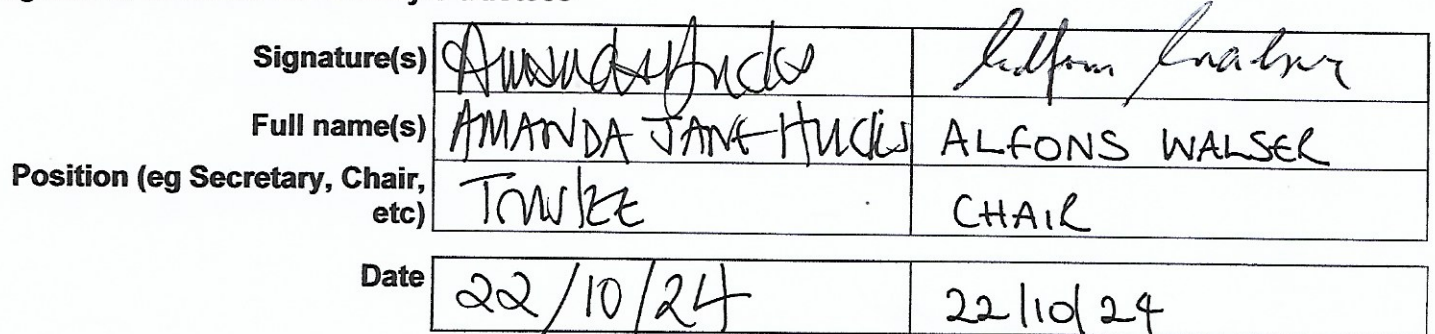 Signature(s) Amanda Hucks
Full name(s) AMANDA JANE HUCKS ALFONS WALSER
Position (eg Secretary, Chair,
etc) CHAIR
Date 22/10/24 22/10/24